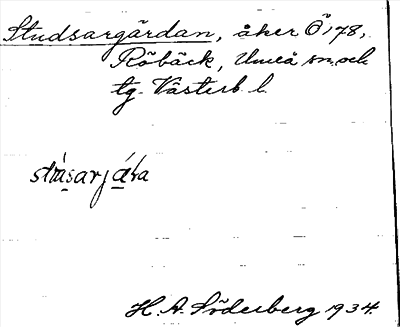 Studsargärdan, åker Ö 178,
Röbäck, Umeå sn. och
tg. Västerb. l.
H. A. Söderberg 1934.